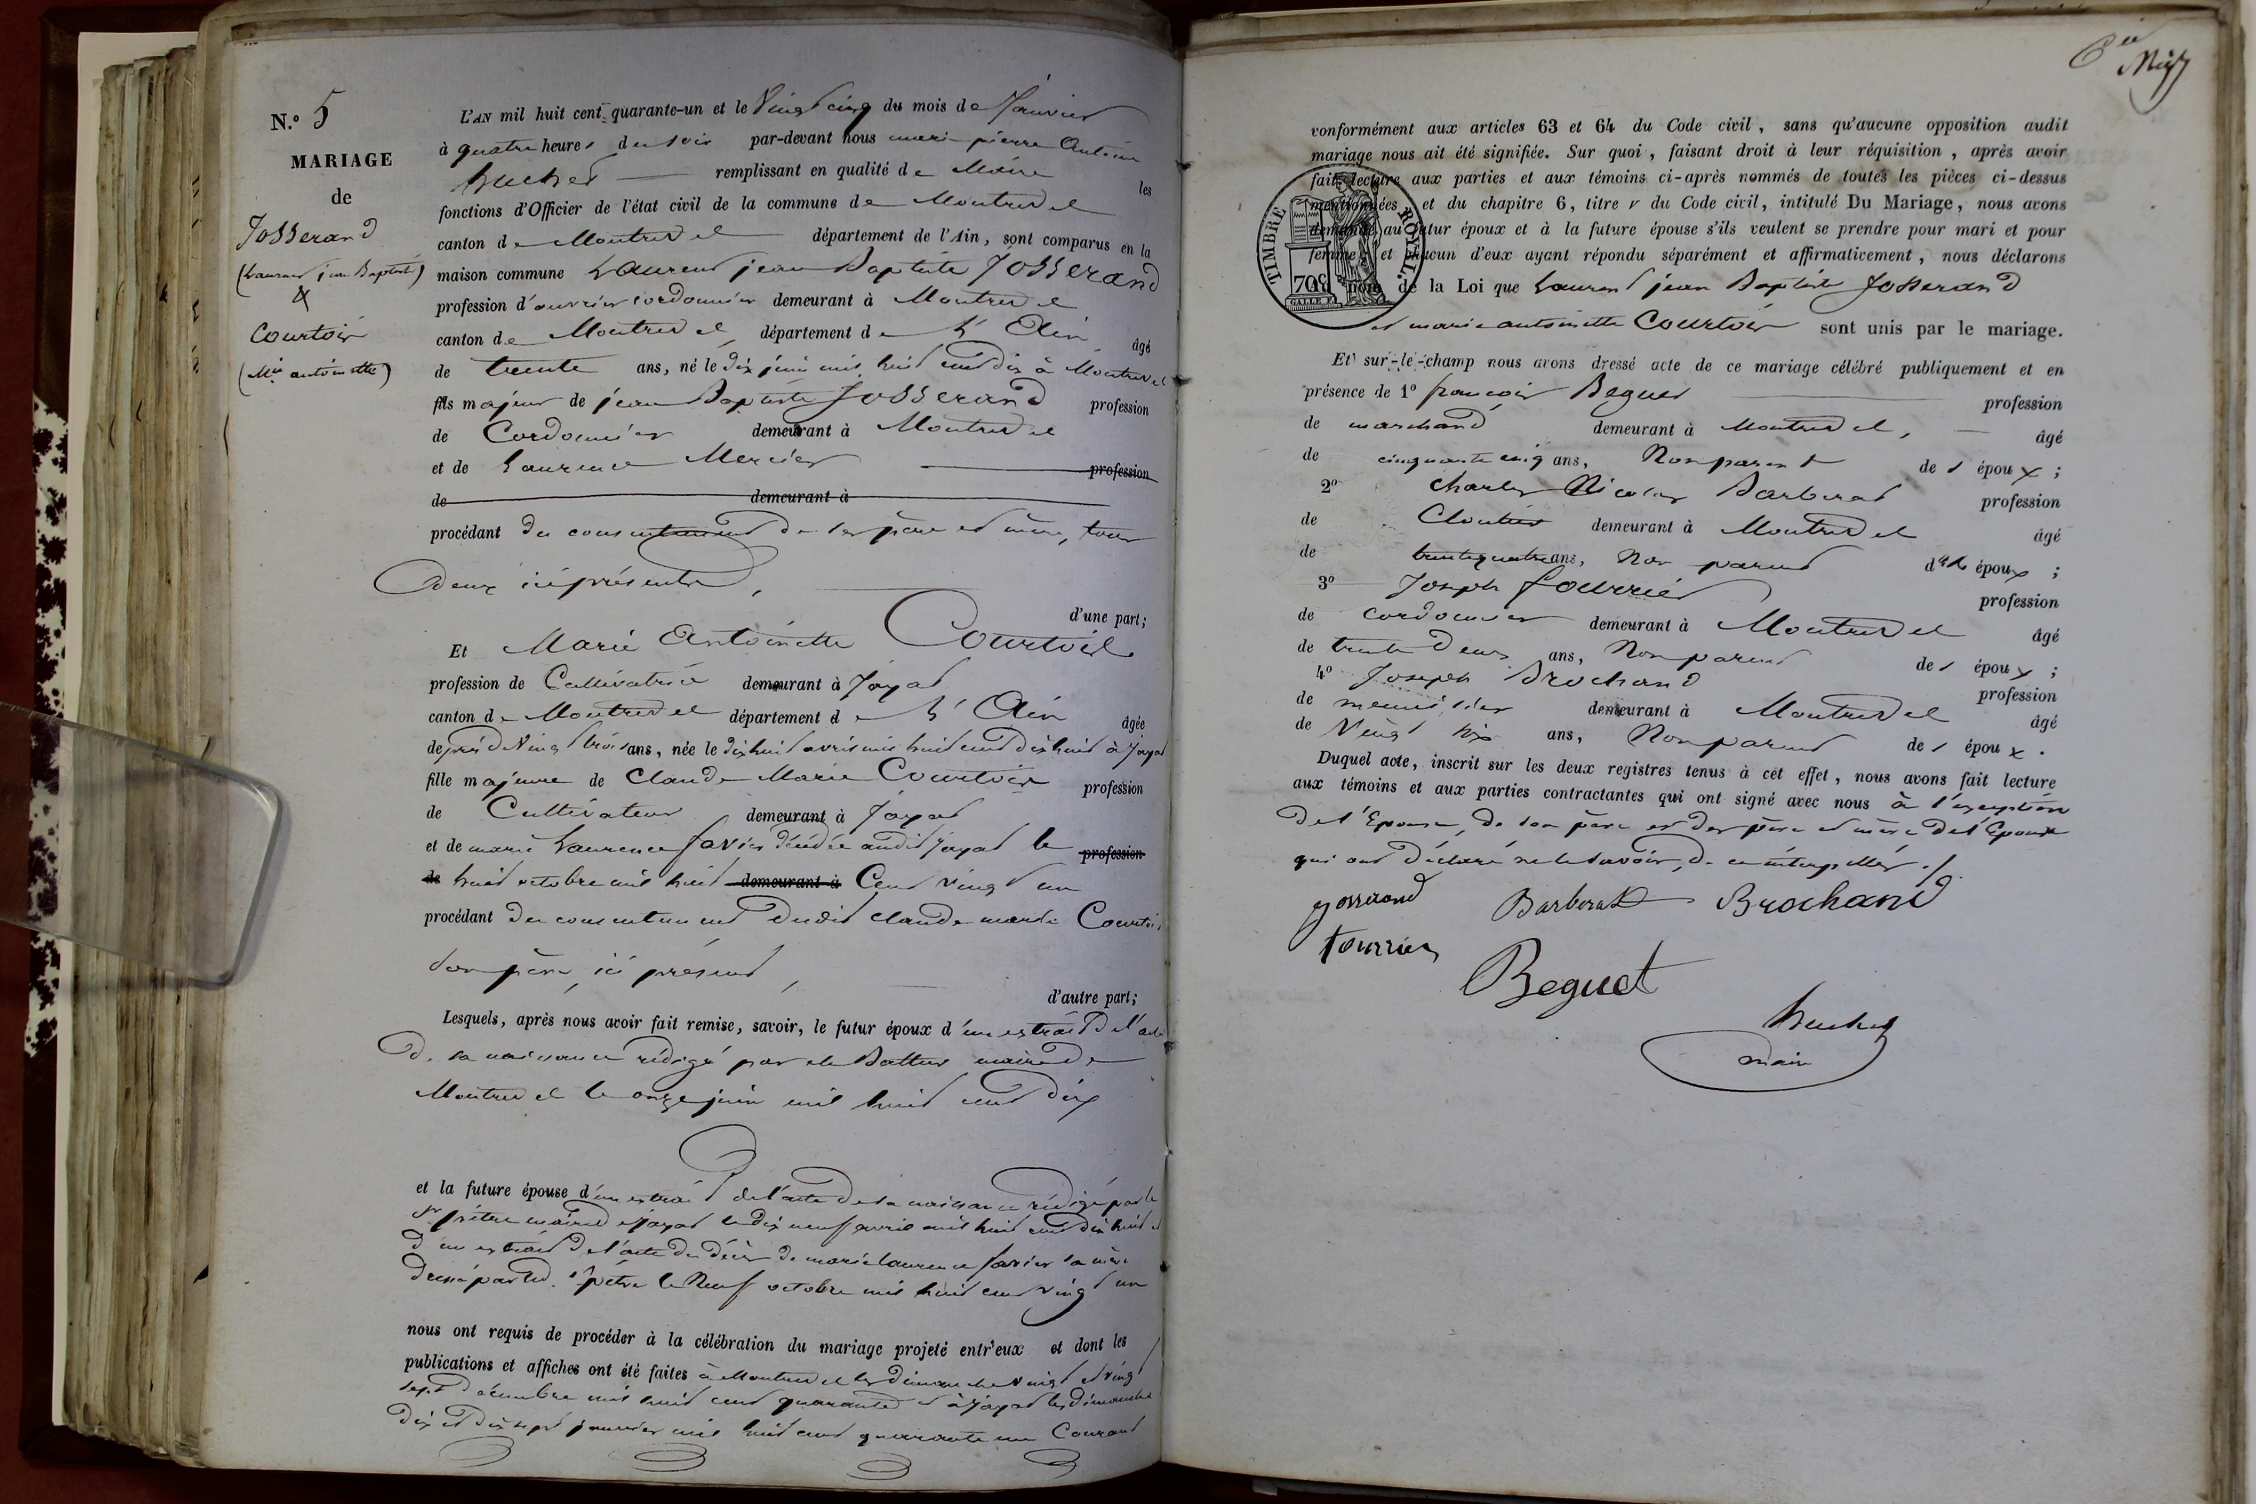 N.º 5
MARIAGE
de
Josserand
(Laurent jean Baptiste)
&
Courtois
(Mie antoinette)
L'AN mil huit cent quarante-un et le Vingt cinq du mois de Janvier
à quatre heures du soir par-devant nous marie pierre Antoine
huchet remplissant en qualité de Maire les
fonctions d'Officier de l'état civil de la commune de Montrevel
canton de Montrevel département de l'Ain, sont comparus en la
maison commune Laurent jean Baptiste Josserand
profession d'ouvrier cordonnier demeurant à Montrevel
canton de Montrevel, département de L'Ain âgé
de trente ans, né le dix juin mil huit cent dix à Montrevel
fils majeur de jean Baptiste Josserand profession
de Cordonnier demeurant à Montrevel
et de Laurence Mercier profession
de demeurant à
procédant du consentement de ses père et mère, tous
deux ici présents,
d'une part;
Et Marie Antoinette Courtois
profession de Cultivatrice demeurant à Jayat
canton de Montrevel département de L'Ain âgée
de près de Vingt trois ans, née le dix huit avril mil huit cent dix huit à Jayat
fille majeure de Claude Marie Courtois profession
de Cultivateur demeurant à Jayat
et de marie Laurence favier décédée audit Jayat le profession
de huit octobre mil huit demeurant à Cent vingt un
procédant du consentement dudit Claude marie Courtois
son père, ici présent,
d'autre part;
Lesquels, après nous avoir fait remise, savoir, le futur époux d'un extrait de l'acte
de sa naissance rédigé par maire de
Montrevel le onze juin mil huit cent dix
et la future épouse d'un extrait de l'acte de sa naissance rédigé par le
Sr maire de Jayat le dix neuf avril mil huit cent dix huit et
d'un extrait de l'acte de décès de marie laurence favier sa mère
dressé par le Neuf octobre mil huit cent vingt un
nous ont requis de procéder à la célébration du mariage projeté entr'eux et dont les
publications et affiches ont été faites à Montrevel les dimanche vingt et vingt
sept décembre mil huit cent quarante et à Jayat les dimanche
dix et dix sept janvier mil huit cent quarante un Courant
conformément aux articles 63 et 64 du Code civil, sans qu'aucune opposition audit
mariage nous ait été signifiée. Sur quoi, faisant droit à leur réquisition, après avoir
fait lecture aux parties et aux témoins ci-après nommés de toutes les pièces ci-dessus
mentionnées et du chapitre 6, titre v du Code civil, intitulé Du Mariage, nous avons
demandé au futur époux et à la future épouse s'ils veulent se prendre pour mari et pour
femme, et chacun d'eux ayant répondu séparément et affirmativement, nous déclarons
nom de la Loi que Laurent jean Baptiste Josserand
et marie antoinette Courtois sont unis par le mariage.
TIMBRE ROYAL.
70c
Et sur-le-champ nous avons dressé acte de ce mariage célébré publiquement et en
présence de 1º francois Beguet profession
de marchand demeurant à Montrevel, âgé
de cinquante cinq ans, Non parent des époux;
2º Charles Nicolas Barberat profession
de Cloutier demeurant à Montrevel âgé
de trente quatre ans, Non parent époux;
3º Joseph fourrier profession
de cordonnier demeurant à Montrevel âgé
de trente deux ans, Non parent des époux;
4º Joseph Brochand profession
de menuisier demeurant à Montrevel âgé
de Vingt six ans, Non parent des époux.
Duquel acte, inscrit sur les deux registres tenus à cet effet, nous avons fait lecture
aux témoins et aux parties contractantes qui ont signé avec nous à l'exception
de l'Epouse, de son père et des père et mère de l'Epoux
qui ont déclaré ne le savoir, de ce interpellés ./.
josserand Barberat Brochand
fourrier
Beguet
huchet
maire